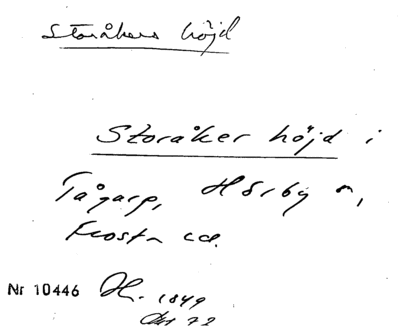 Storåkers höjd
Storåker höjd i
Tågarp, Hörby n,
Frosta
Nr 10446 1849
72